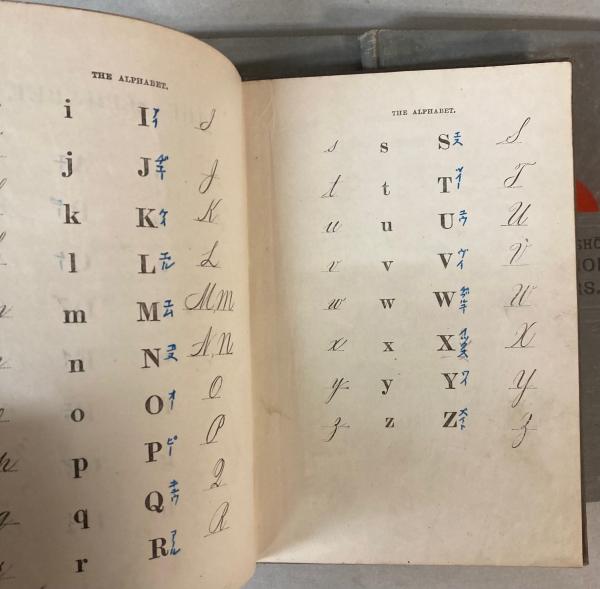 THE ALPHABET.
i I アイ I
j J J
k K ケイ K
l L エル L
m M エム M, m
n N エヌ N, n
o O オー O
p P ピー P
q Q キウ Q
r R アール R
THE ALPHABET.
s s S エス S
t t T T
u u U ユウ U
v v V ヴイ V
w w W W
x x X X
y y Y ワイ Y
z z Z Z